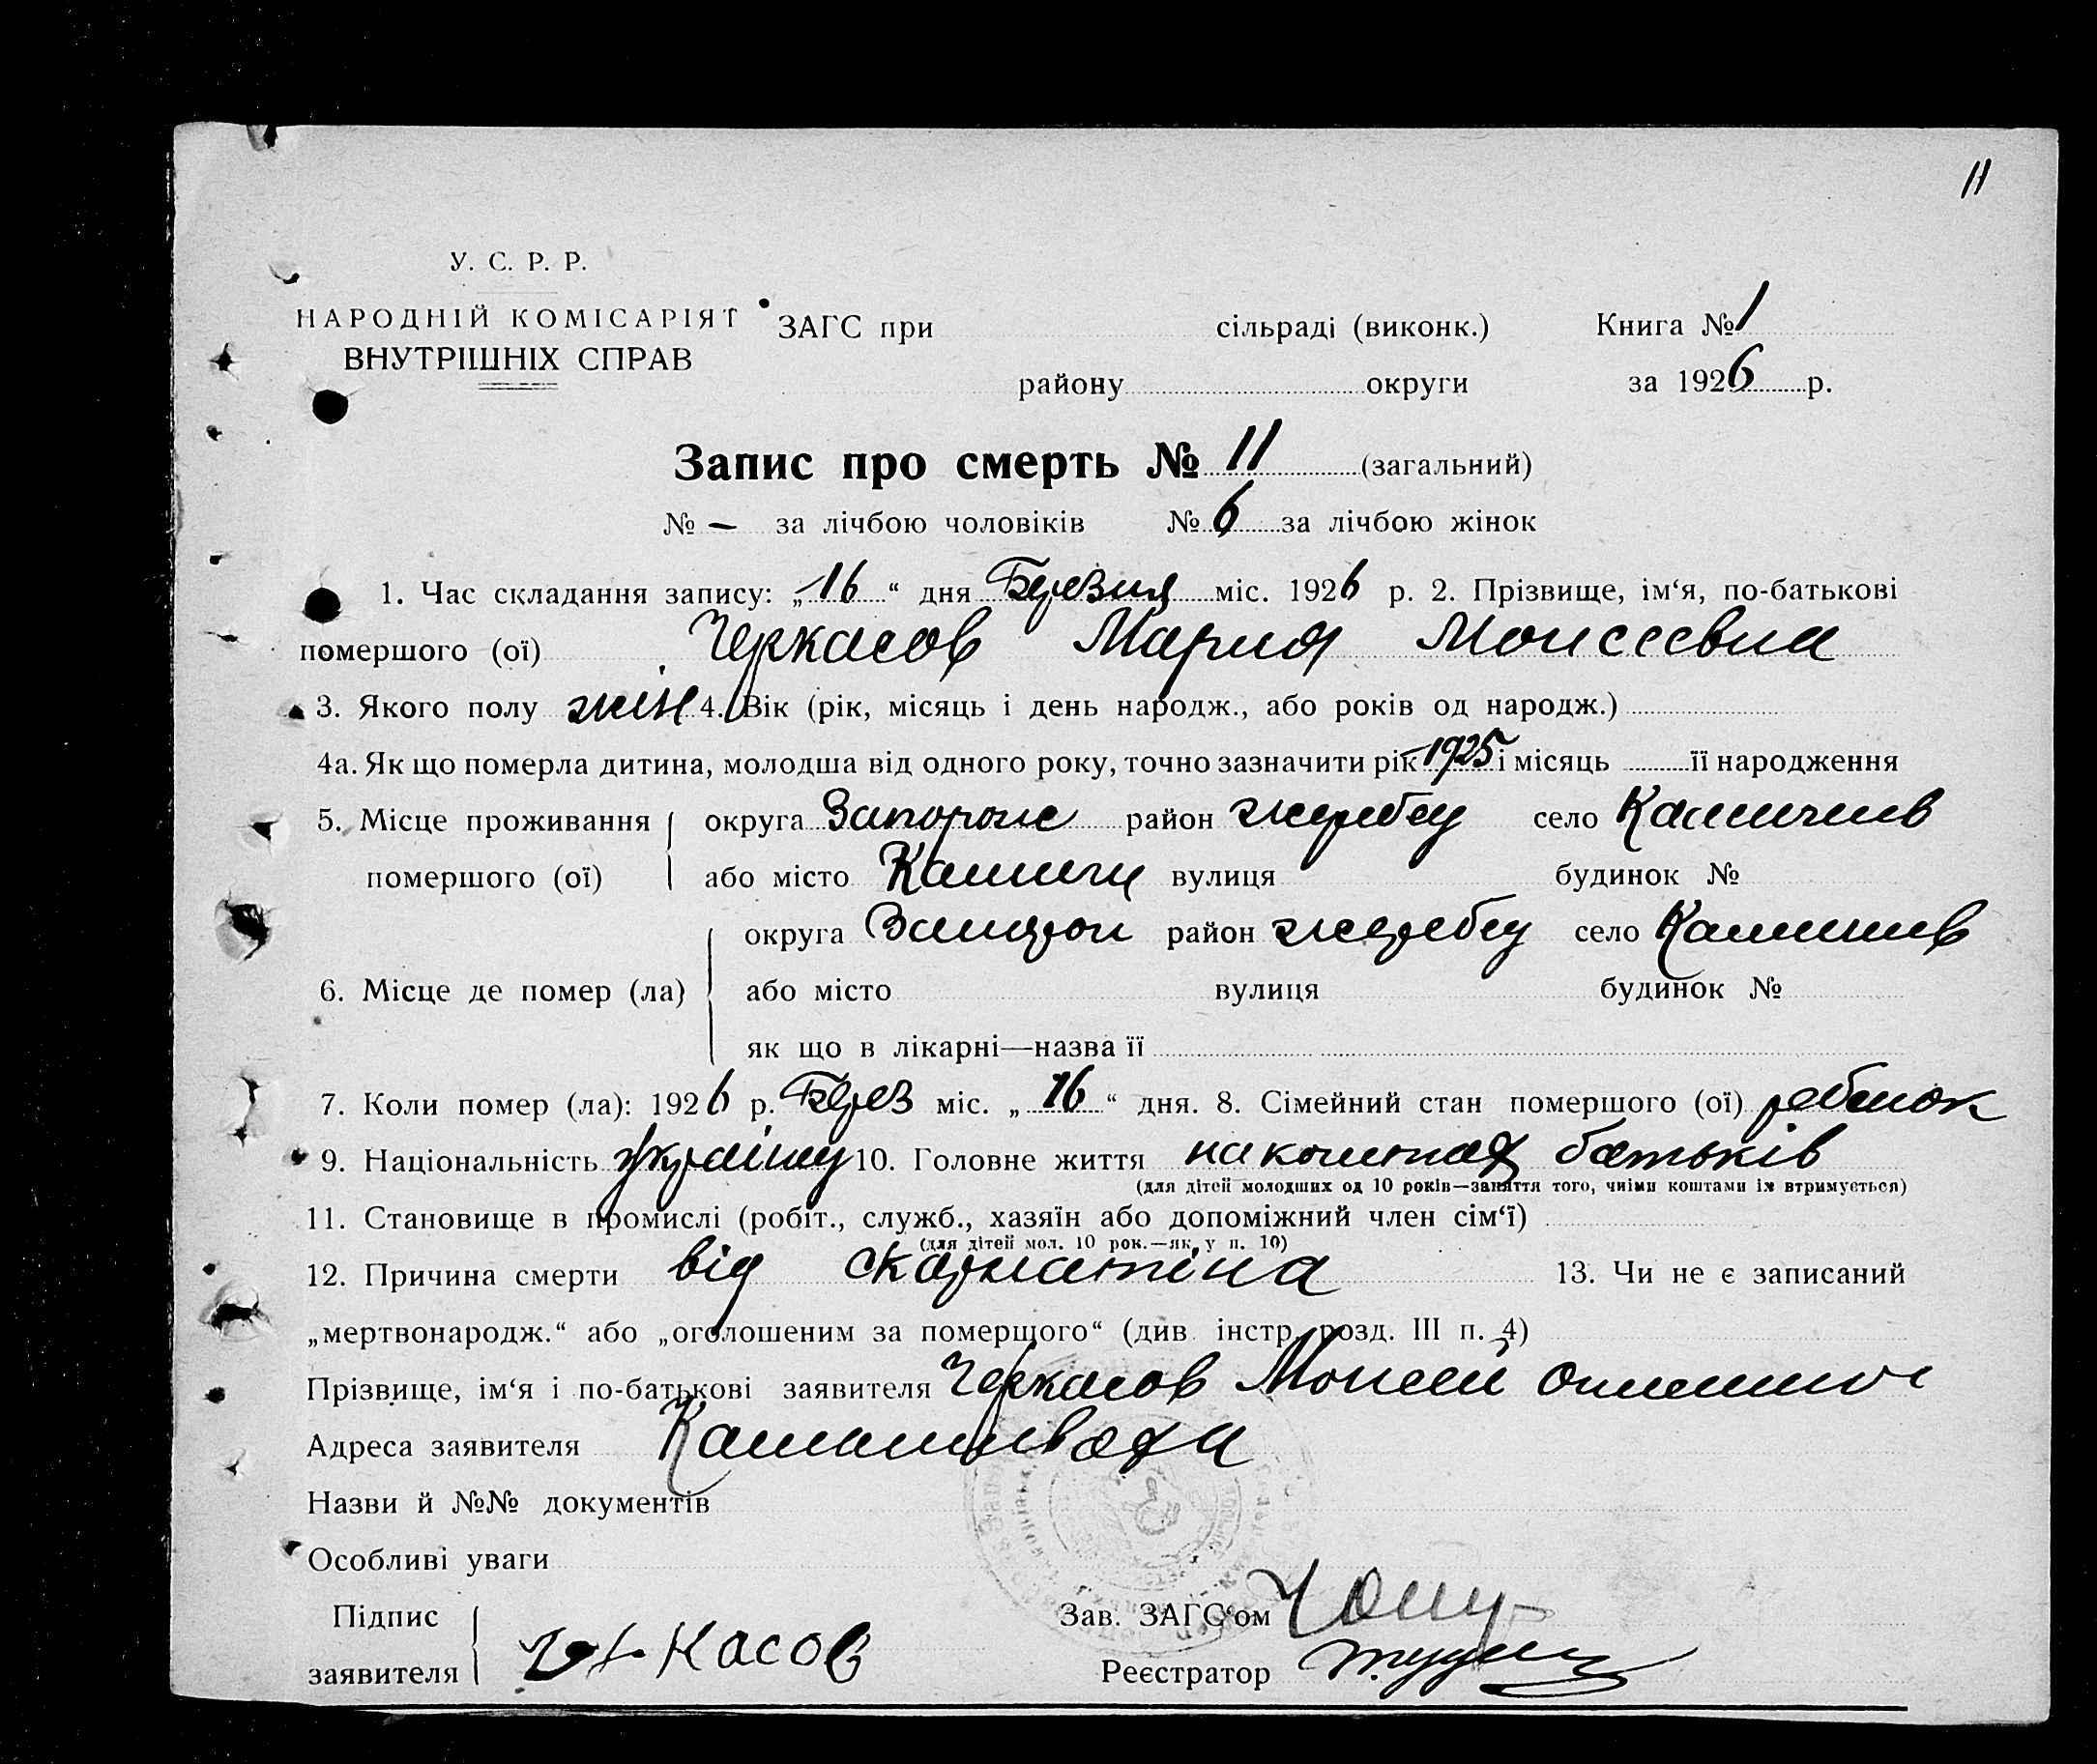 11
У. С. Р. Р.
НАРОДНІЙ КОМІСАРІЯТ ЗАГС при сільраді (виконк.) Книга № 1
ВНУТРІШНІХ СПРАВ
району округи за 1926 р.
Запис про смерть № 11 (загальний)
№ — за лічбою чоловіків № 6 за лічбою жінок
1. Час складання запису: „16“ дня Березня міс. 1926 р. 2. Прізвище, ім‘я, по-батькові
помершого (ої) Черкасов Мария Моисеевна
3. Якого полу жін 4. Вік (рік, місяць і день народж., або років од народж.)
4а. Як що померла дитина, молодша від одного року, точно зазначити рік 1925 і місяць її народження
5. Місце проживання округа Запорож район жеребец село
помершого (ої) або місто вулиця будинок №
округа район жеребец село
6. Місце де помер (ла) або місто вулиця будинок №
як що в лікарні—назва її
7. Коли помер (ла): 1926 р. Берез міс. „16“ дня. 8. Сімейний стан помершого (ої) ребенок
9. Національність 10. Головне життя на коштах батьків
(для дітей молодших од 10 років—заняття того, чиїми коштами їх втримується)
11. Становище в промислі (робіт., служб., хазяїн або допоміжний член сім‘ї)
(для дітей мол. 10 рок.—як у п. 10)
12. Причина смерти від скарлатіна 13. Чи не є записаний
„мертвонародж.“ або „оголошеним за померщого“ (див. інстр. розд. III п. 4)
Прізвище, ім‘я і по-батькові заявителя Черкасов Моисей
Адреса заявителя
Назви й №№ документів
Особливі уваги
Підпис Зав. ЗАГС‘ом
заявителя Черкасов Реєстратор